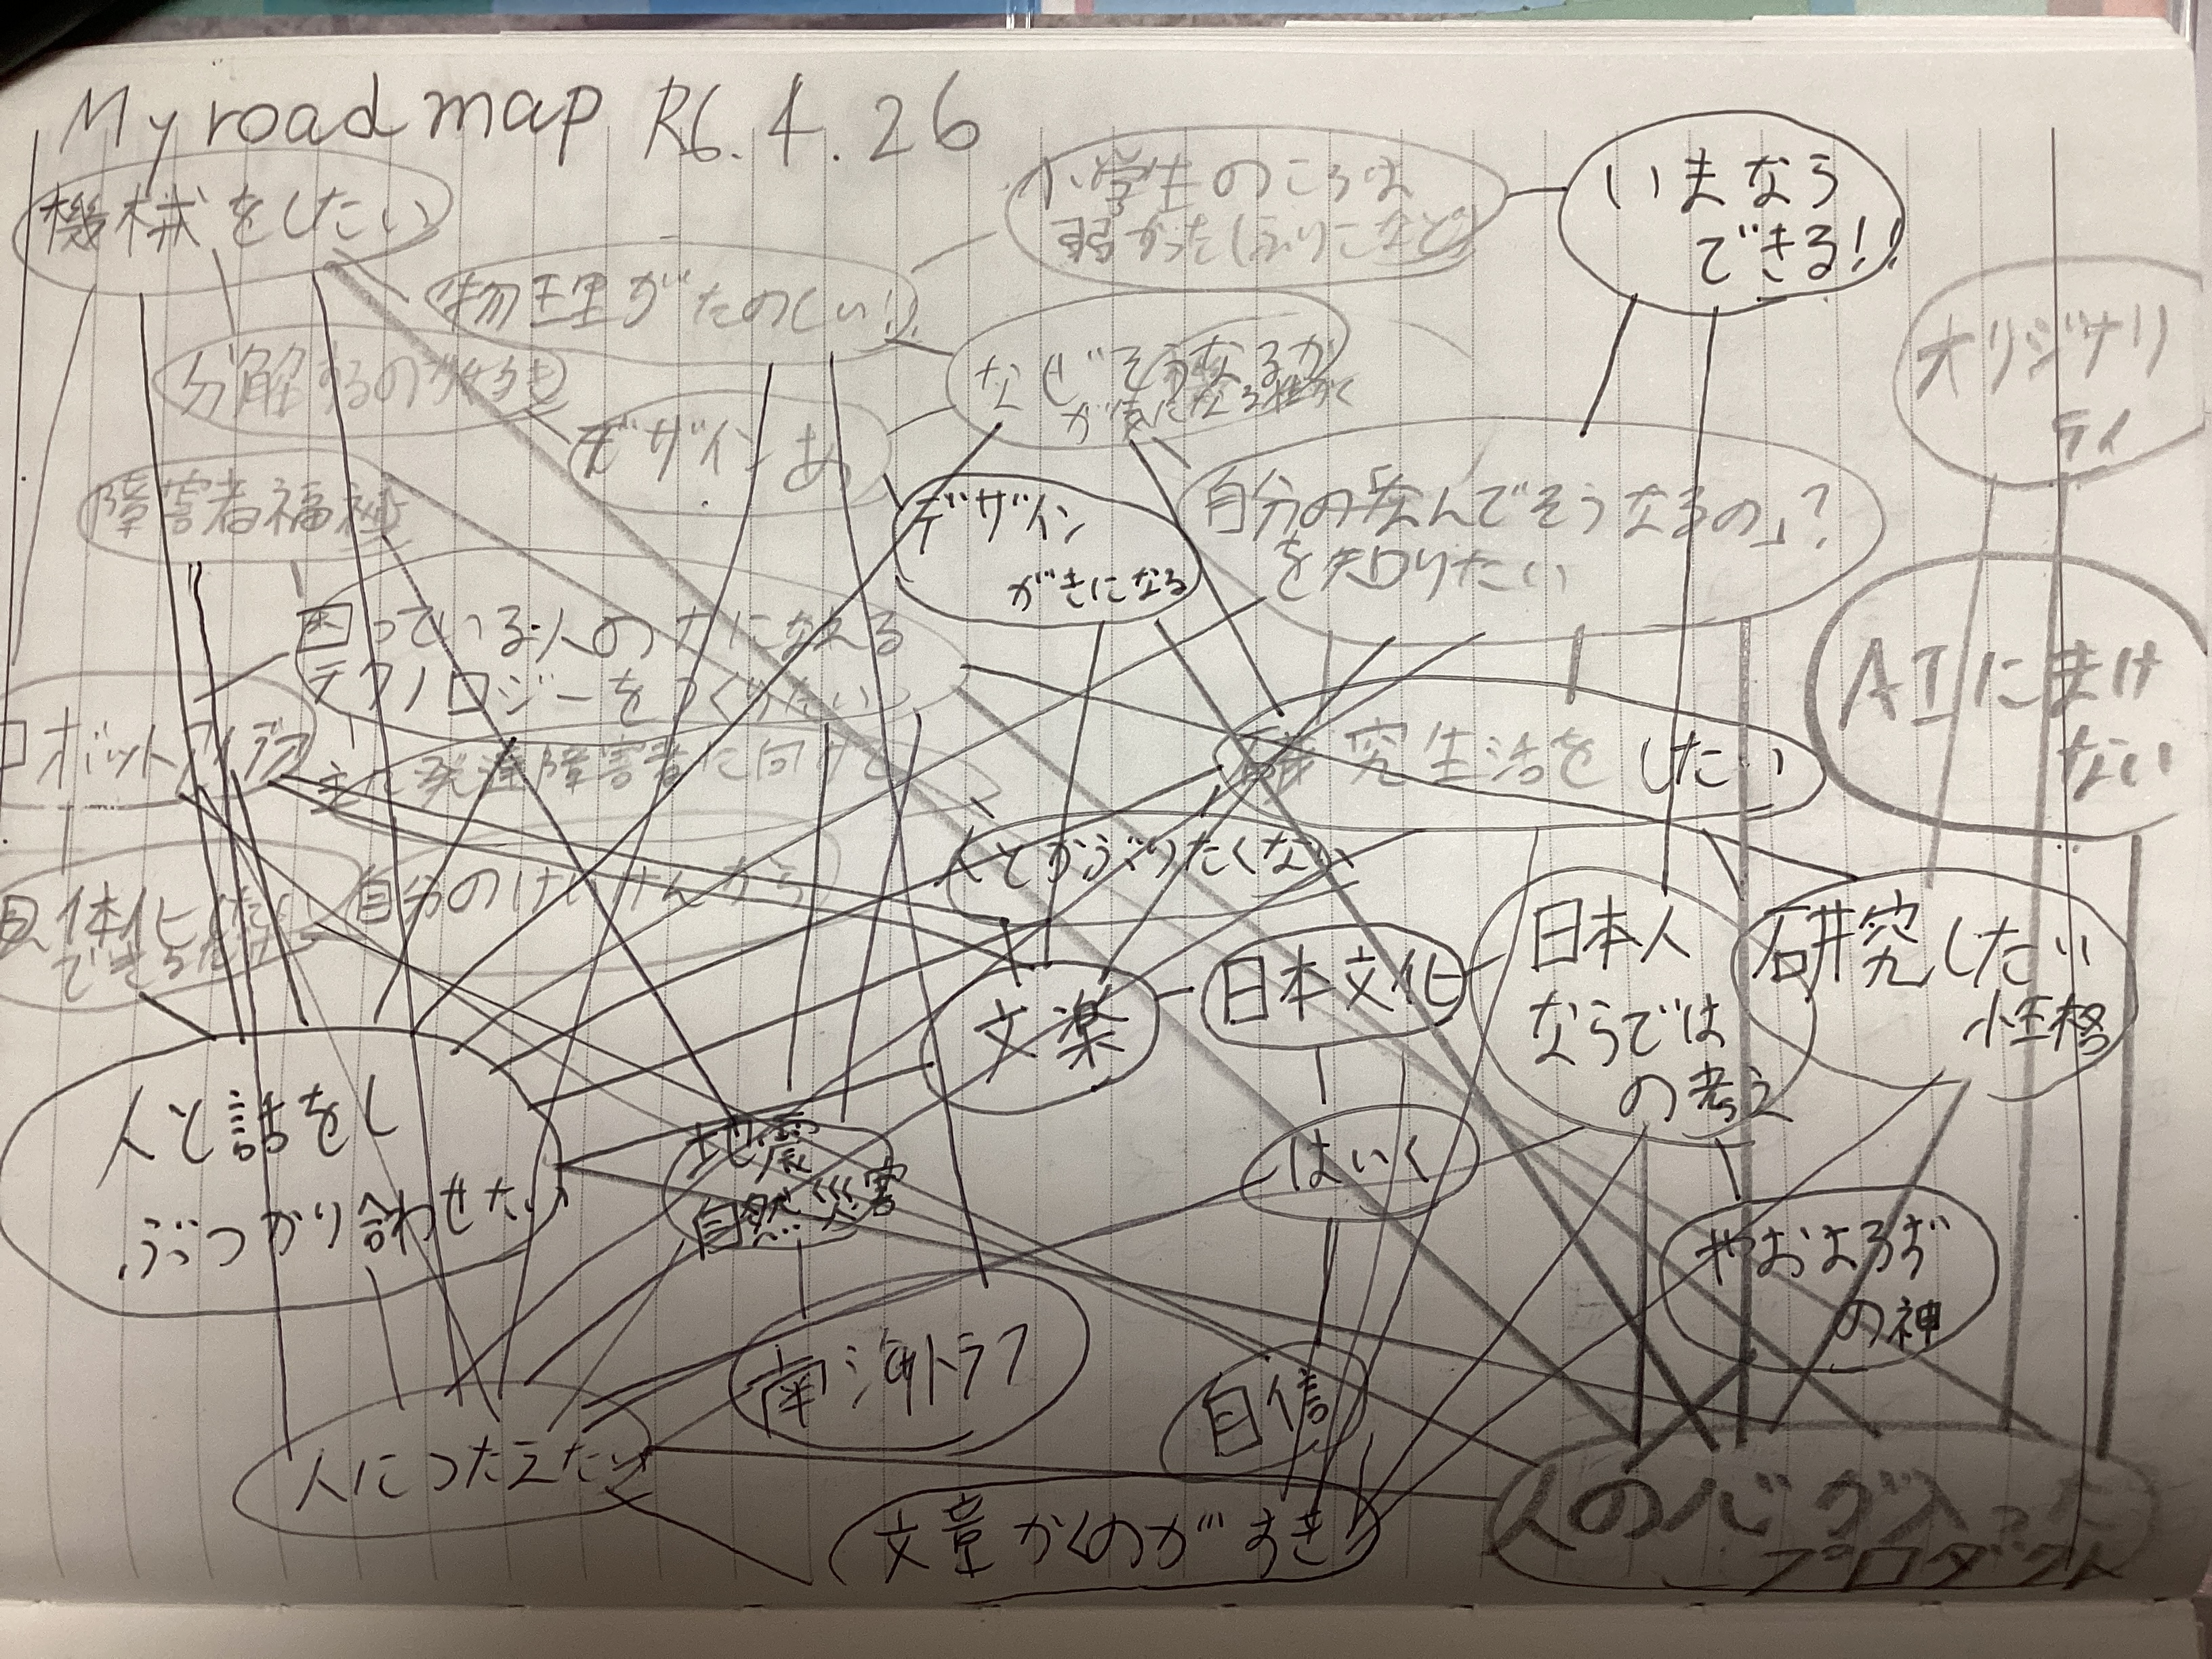 My road map R6.4.26
機械をしたい
小学生のころは
弱かった
いまなら
できる!!
物理がたのしい!!
オリジナリ
ティ
分解するのが好き
なぜそうなるか
が気になる性格
デザインあ
障害者福祉
デザイン
がきになる
自分の「なんでそうなるの」?
を知りたい
困っている人の力になれる
テクノロジーをつくりたい
AIにまけ
ない
ロボットアイデア
主に発達障害者に向けて
研究生活をしたい
人とかぶりたくない
自分のけいけんから
具体化
できちゃった
文楽
日本文化
日本人
ならでは
の考え
研究したい
性格
人と話をし
ぶつかり合わせたい
地震
自然災害
はいく
やおよろず
の神
南海トラフ
自信
人につたえたい
文章かくのがすき
人の心が入った
プロダクト